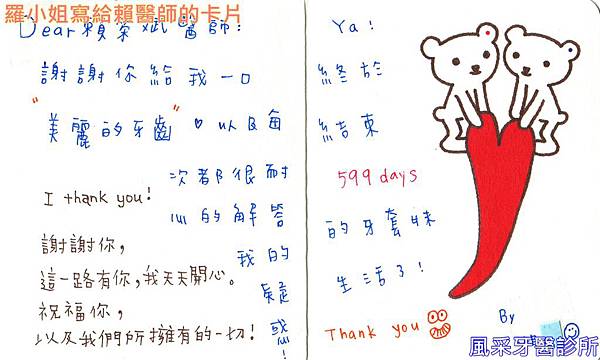 羅小姐寫給賴醫師的卡片
Dear賴榮斌醫師:
謝謝你給我一口
"美麗的牙齒"♡以及每
次都很耐
心的解答
我的
疑
惑!
I thank you!
謝謝你,
這一路有你,我天天開心。
祝福你,
以及我們所擁有的一切!
Ya!
終於
結束
599 days
的牙套妹
生活了!
Thank you
By
風采牙醫診所